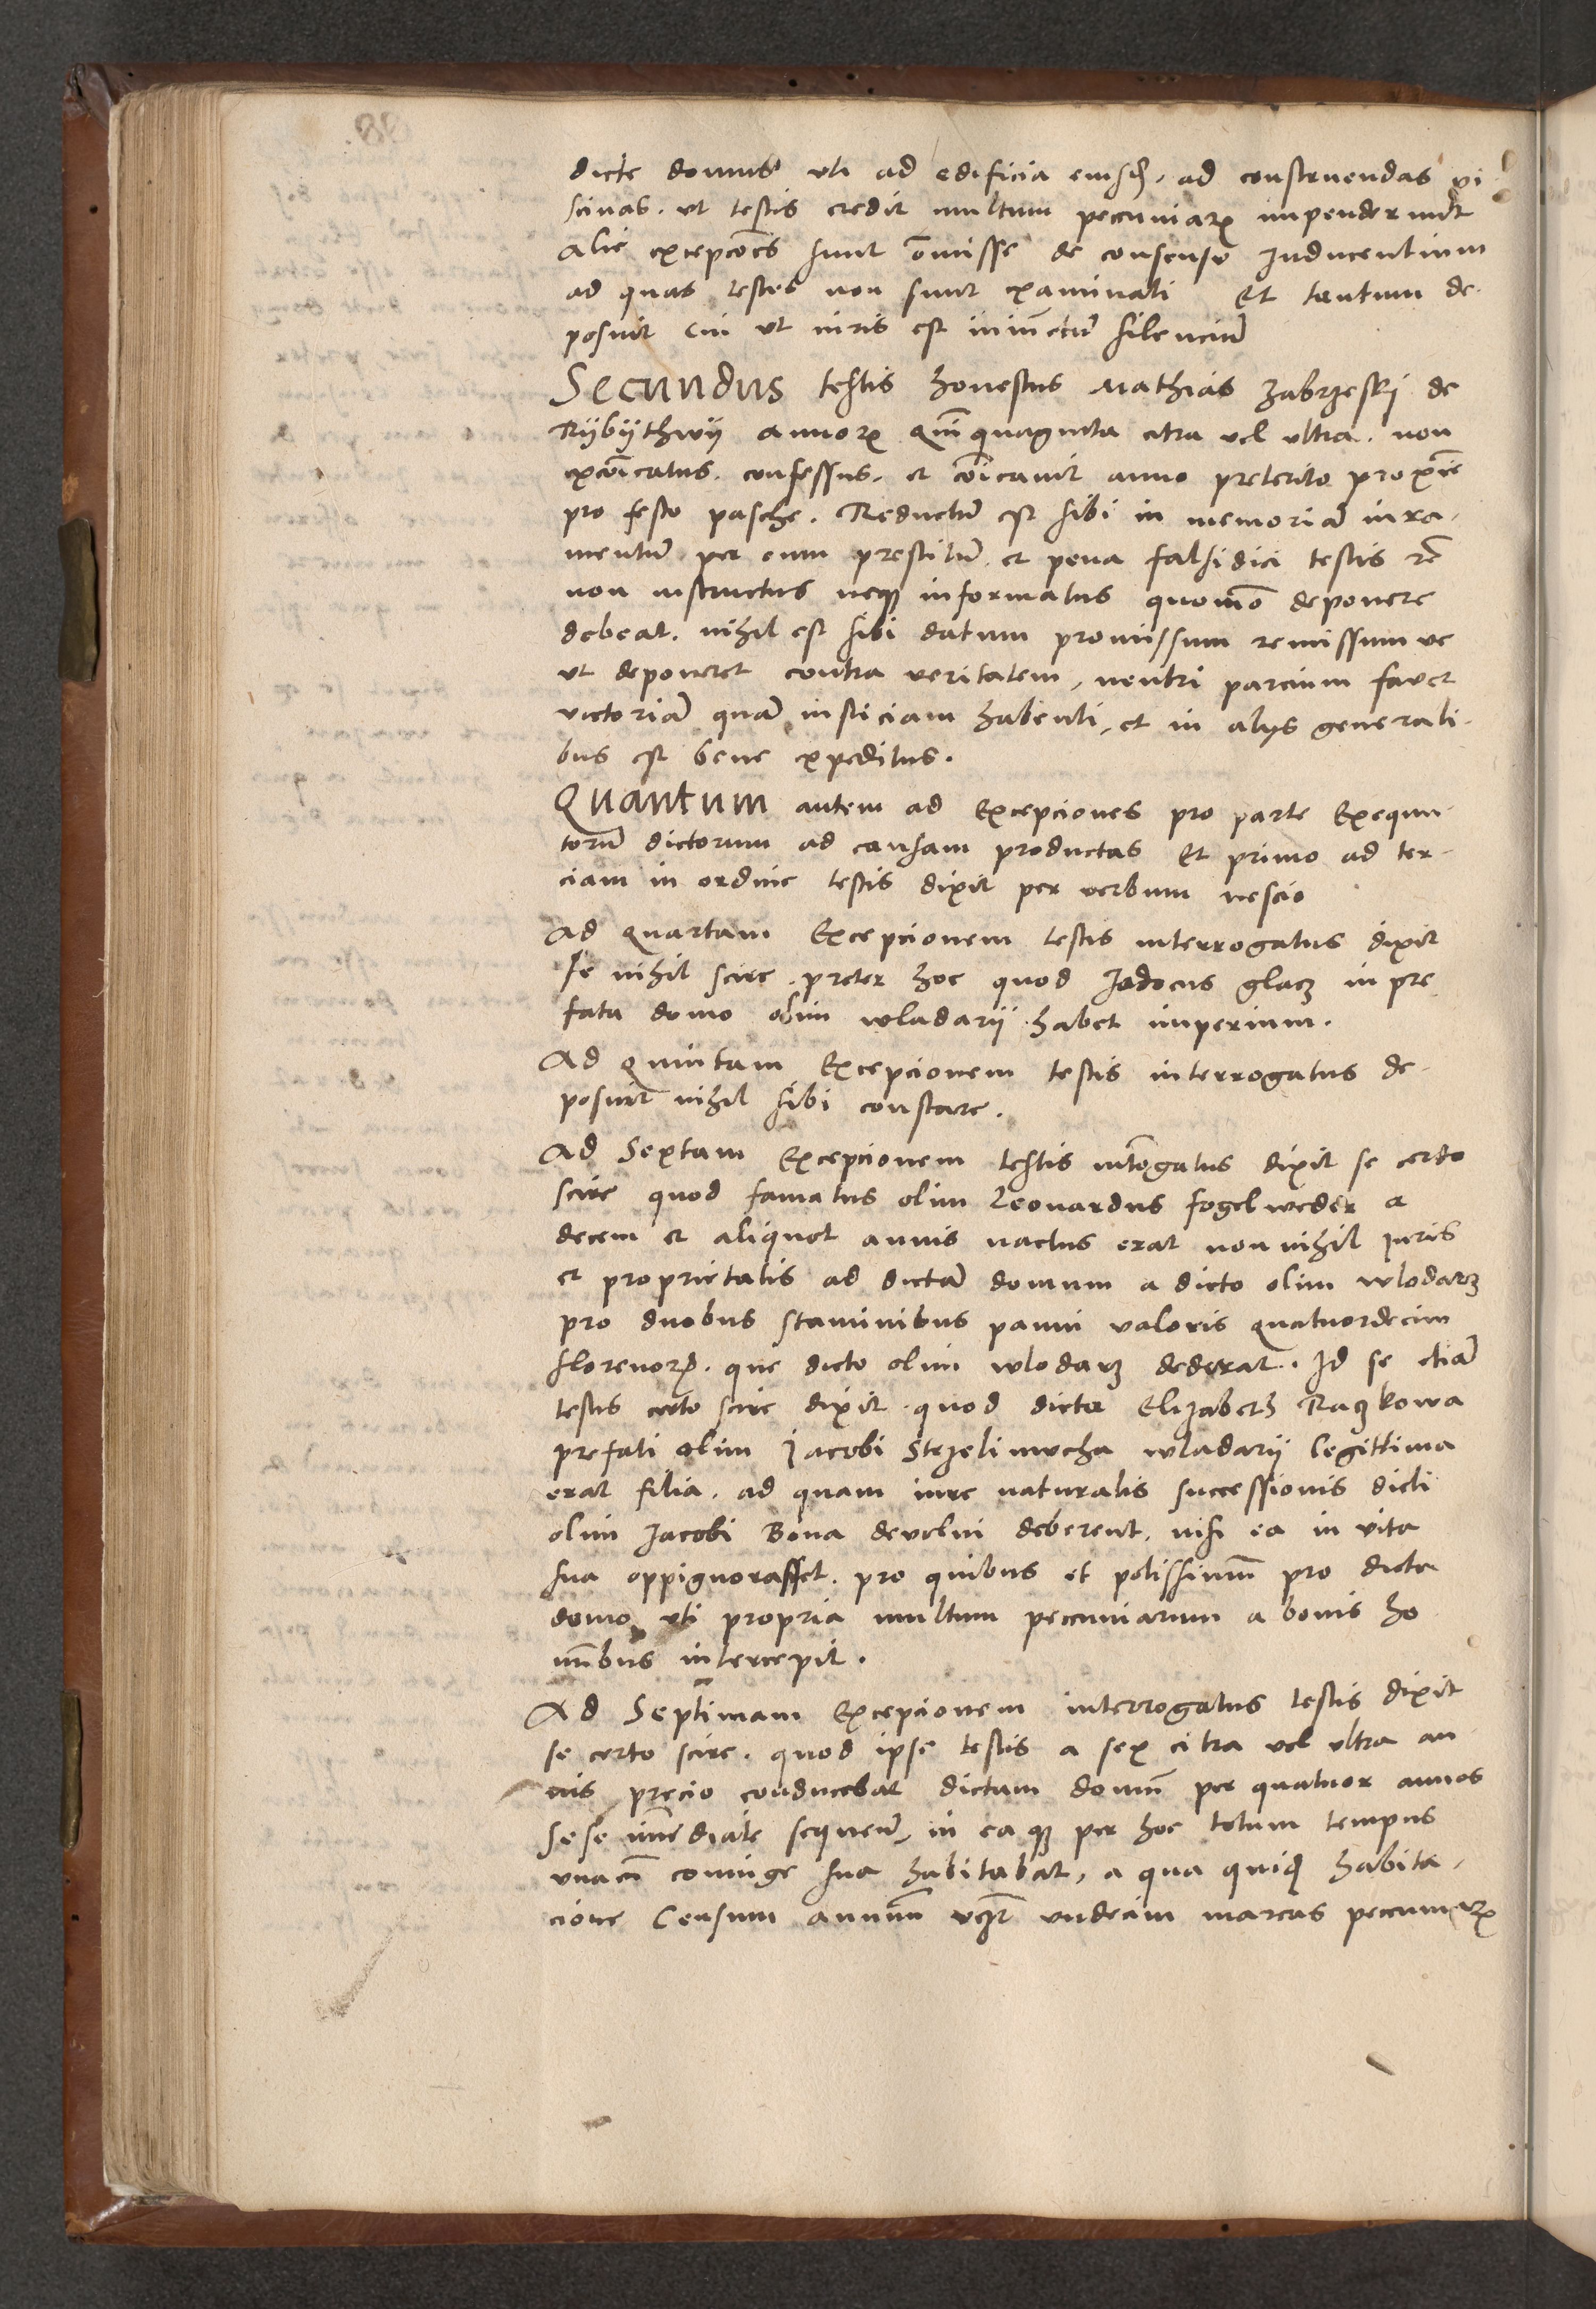 dicte domus uti ad edificia eiusdē, ad construendas pi
scinas. ut testis credit multum pecuniarꝝ impenderunt
Alie excepcōes sunt ōmisse de consensu Inducentium
ad quas testes non sunt examinati Et tantum de-
posuit Cui ut iuris est iniūctū silenciū
Secundus testis honestus Mathias Zabrzeski de
Rijbijthwij annorꝝ Quīquaginta citra vel ultra. non
excōicatus. confessus. et cōicavit anno preterito proxīe
pro festo pasche. Reductū est sibi in memoriā iura-
mentū per eum prestitū. et pena falsidici testis rē
non instructus neqꝫ informatus quomō deponere
debeat. nihil est sibi datum promissum remissum ve
ut deponeret contra veritatem, neutri parcium favet
victoriā quā iusticiam habenti, et in alijs generali-
bus est bene expeditus.
Quantum autem ad Excepciones pro parte Exequu-
torū dictorum ad causam productas Et primo ad ter-
ciam in ordine testis dixit per verbum nescio
Ad Quartam Excepcionem testis interrogatus dixit
se nihil scire. preter hoc quod Jodocus glacz in pre
fata domo olim wladarij habet imperium.
Ad Quintam Excepcionem testis interrogatus de-
posuit nihil sibi constare.
Ad Sextam Excepcionem testis intēogatus dixit se certo
scire quod famatus olim Leonardus fogelweder a
decem et aliquot annis nactus erat nonnihil Juris
et proprietatis ad dictā domum a dicto olim wlodarz
pro duobus staminibus panni valoris quatuordecim
florenorꝝ. que dicto olim wlodarz dederat. Id se etiā
testis certo scire dixit. quod dicta Elizabeth Raczkowa
prefati olim Jacobi Strzelimucha wladarij legittima
erat filia. ad quam iure naturalis successionis dicti
olim Jacobi Bona devolui deberent. nisi ea in vita
sua oppignorasset. pro quibus et potissimū pro dicta
domo uti propria multum pecuniarum a bonis ho
mībus intercepit.
Ad Septimam Excepcionem interrogatus testis dixit
se certo scire. quod ipse testis a sex citra vel ultra an
nis precio conducebat dictam domū per quatuor annos
sese īmediate sequeñ, in eaqꝫ per hoc totum tempus
unacū coniuge sua habitabat, a qua quidē habita-
cione Censum annuū vꝫ undecim marcas pecuniarꝝ